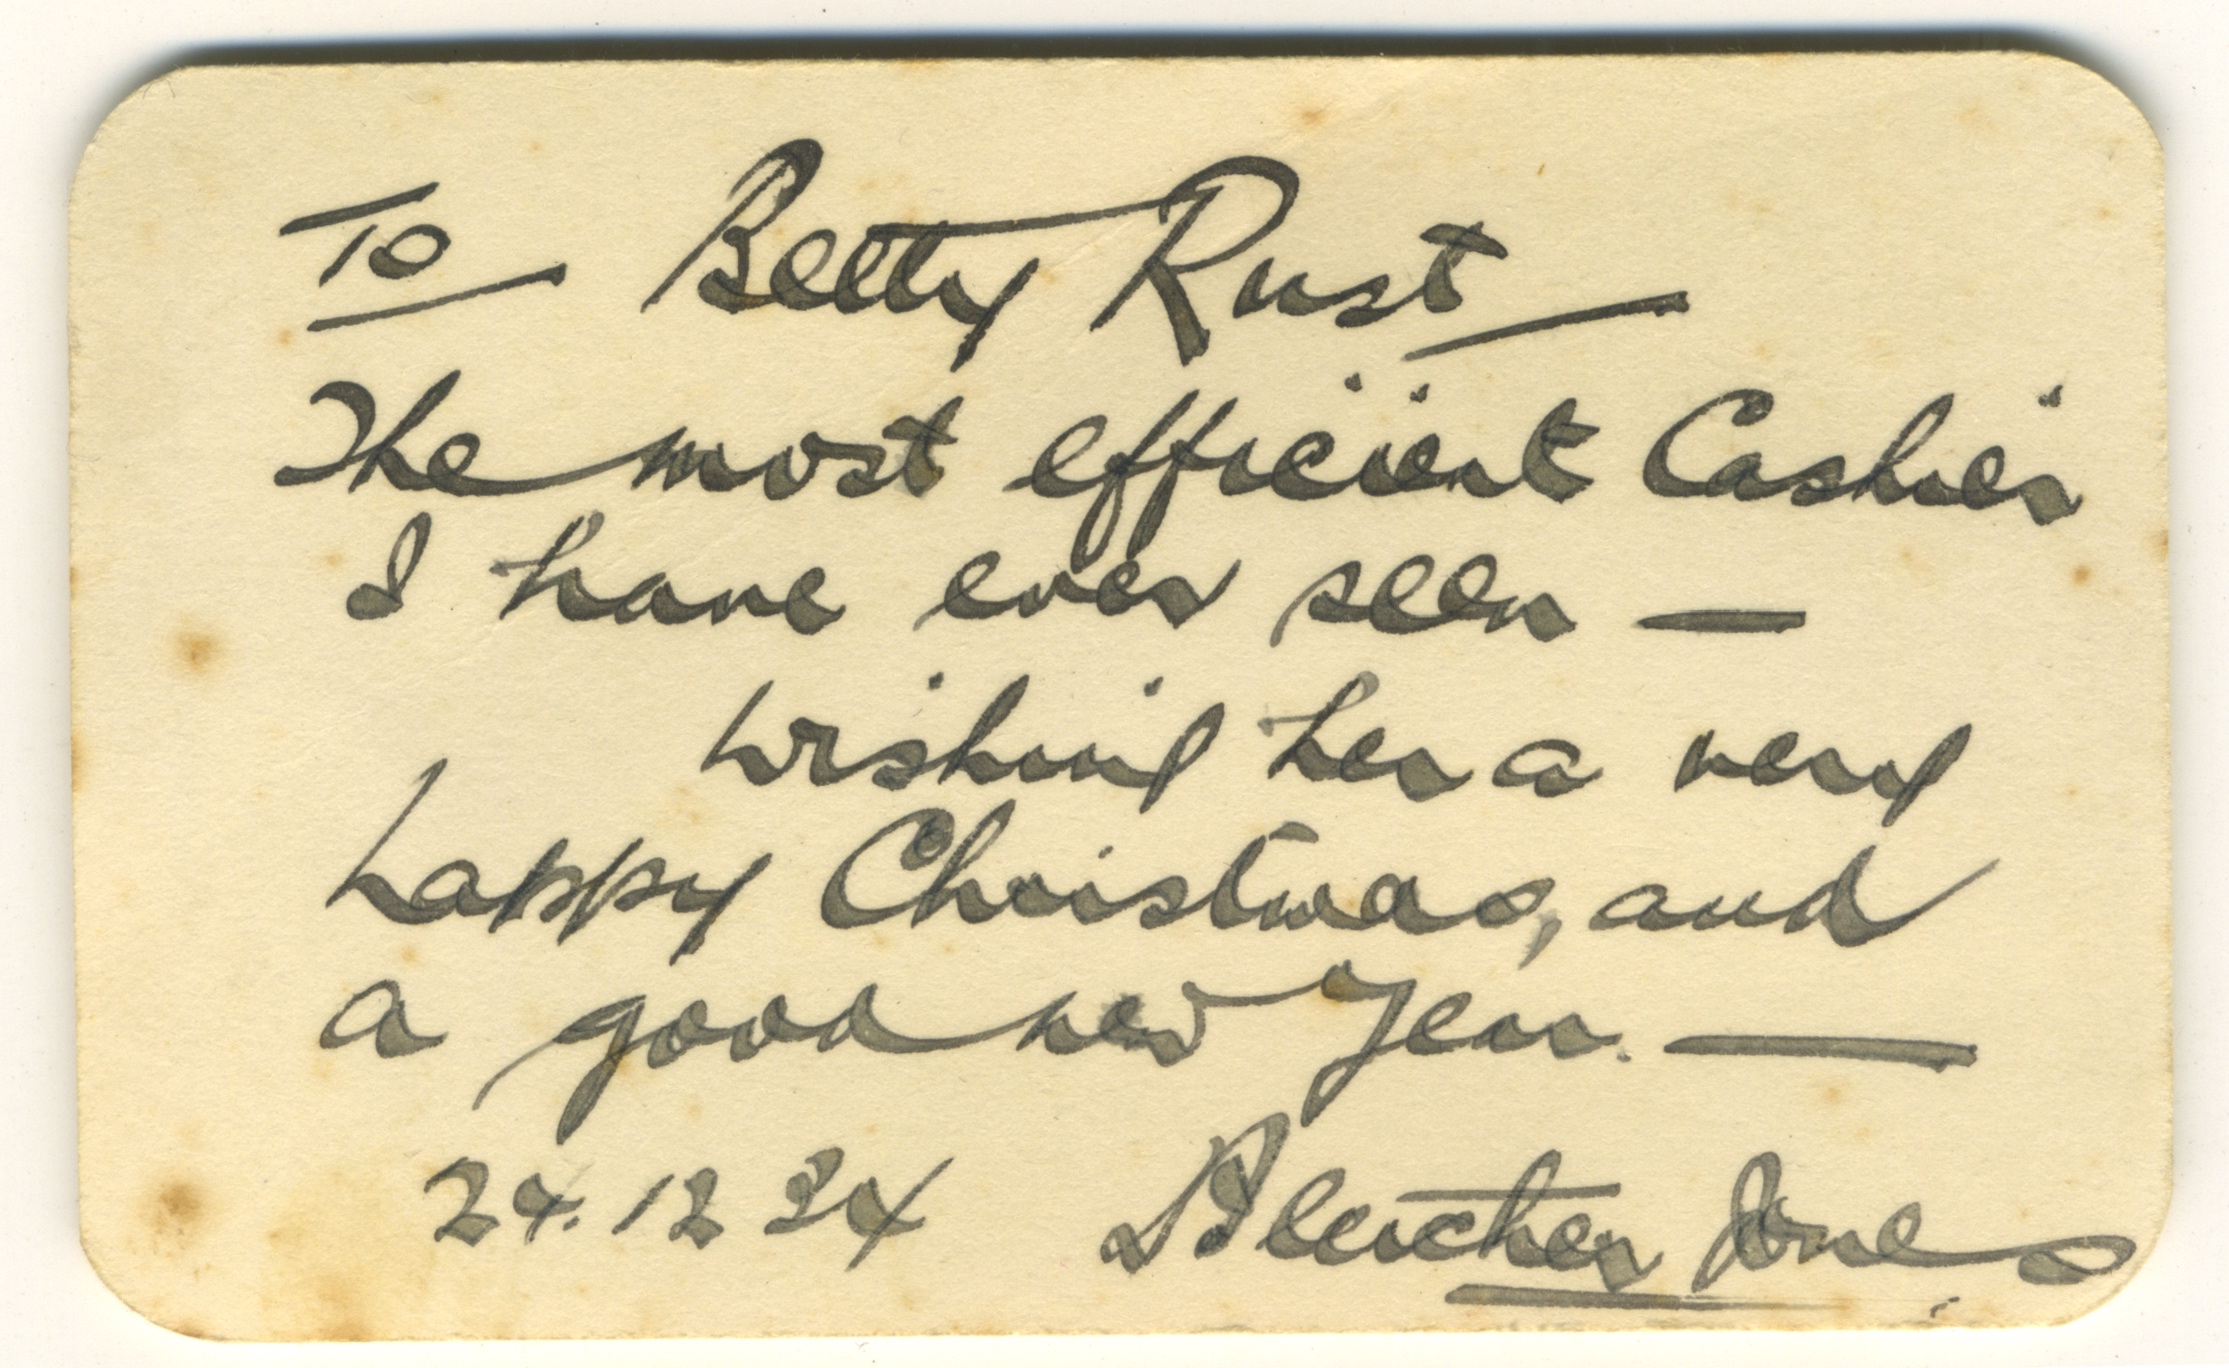 To Betty Rust
The most efficient Cashier
I have ever seen —
wishing her a very
happy Christmas, and
a good new Year. —
24.12 34 Bleucher Jones